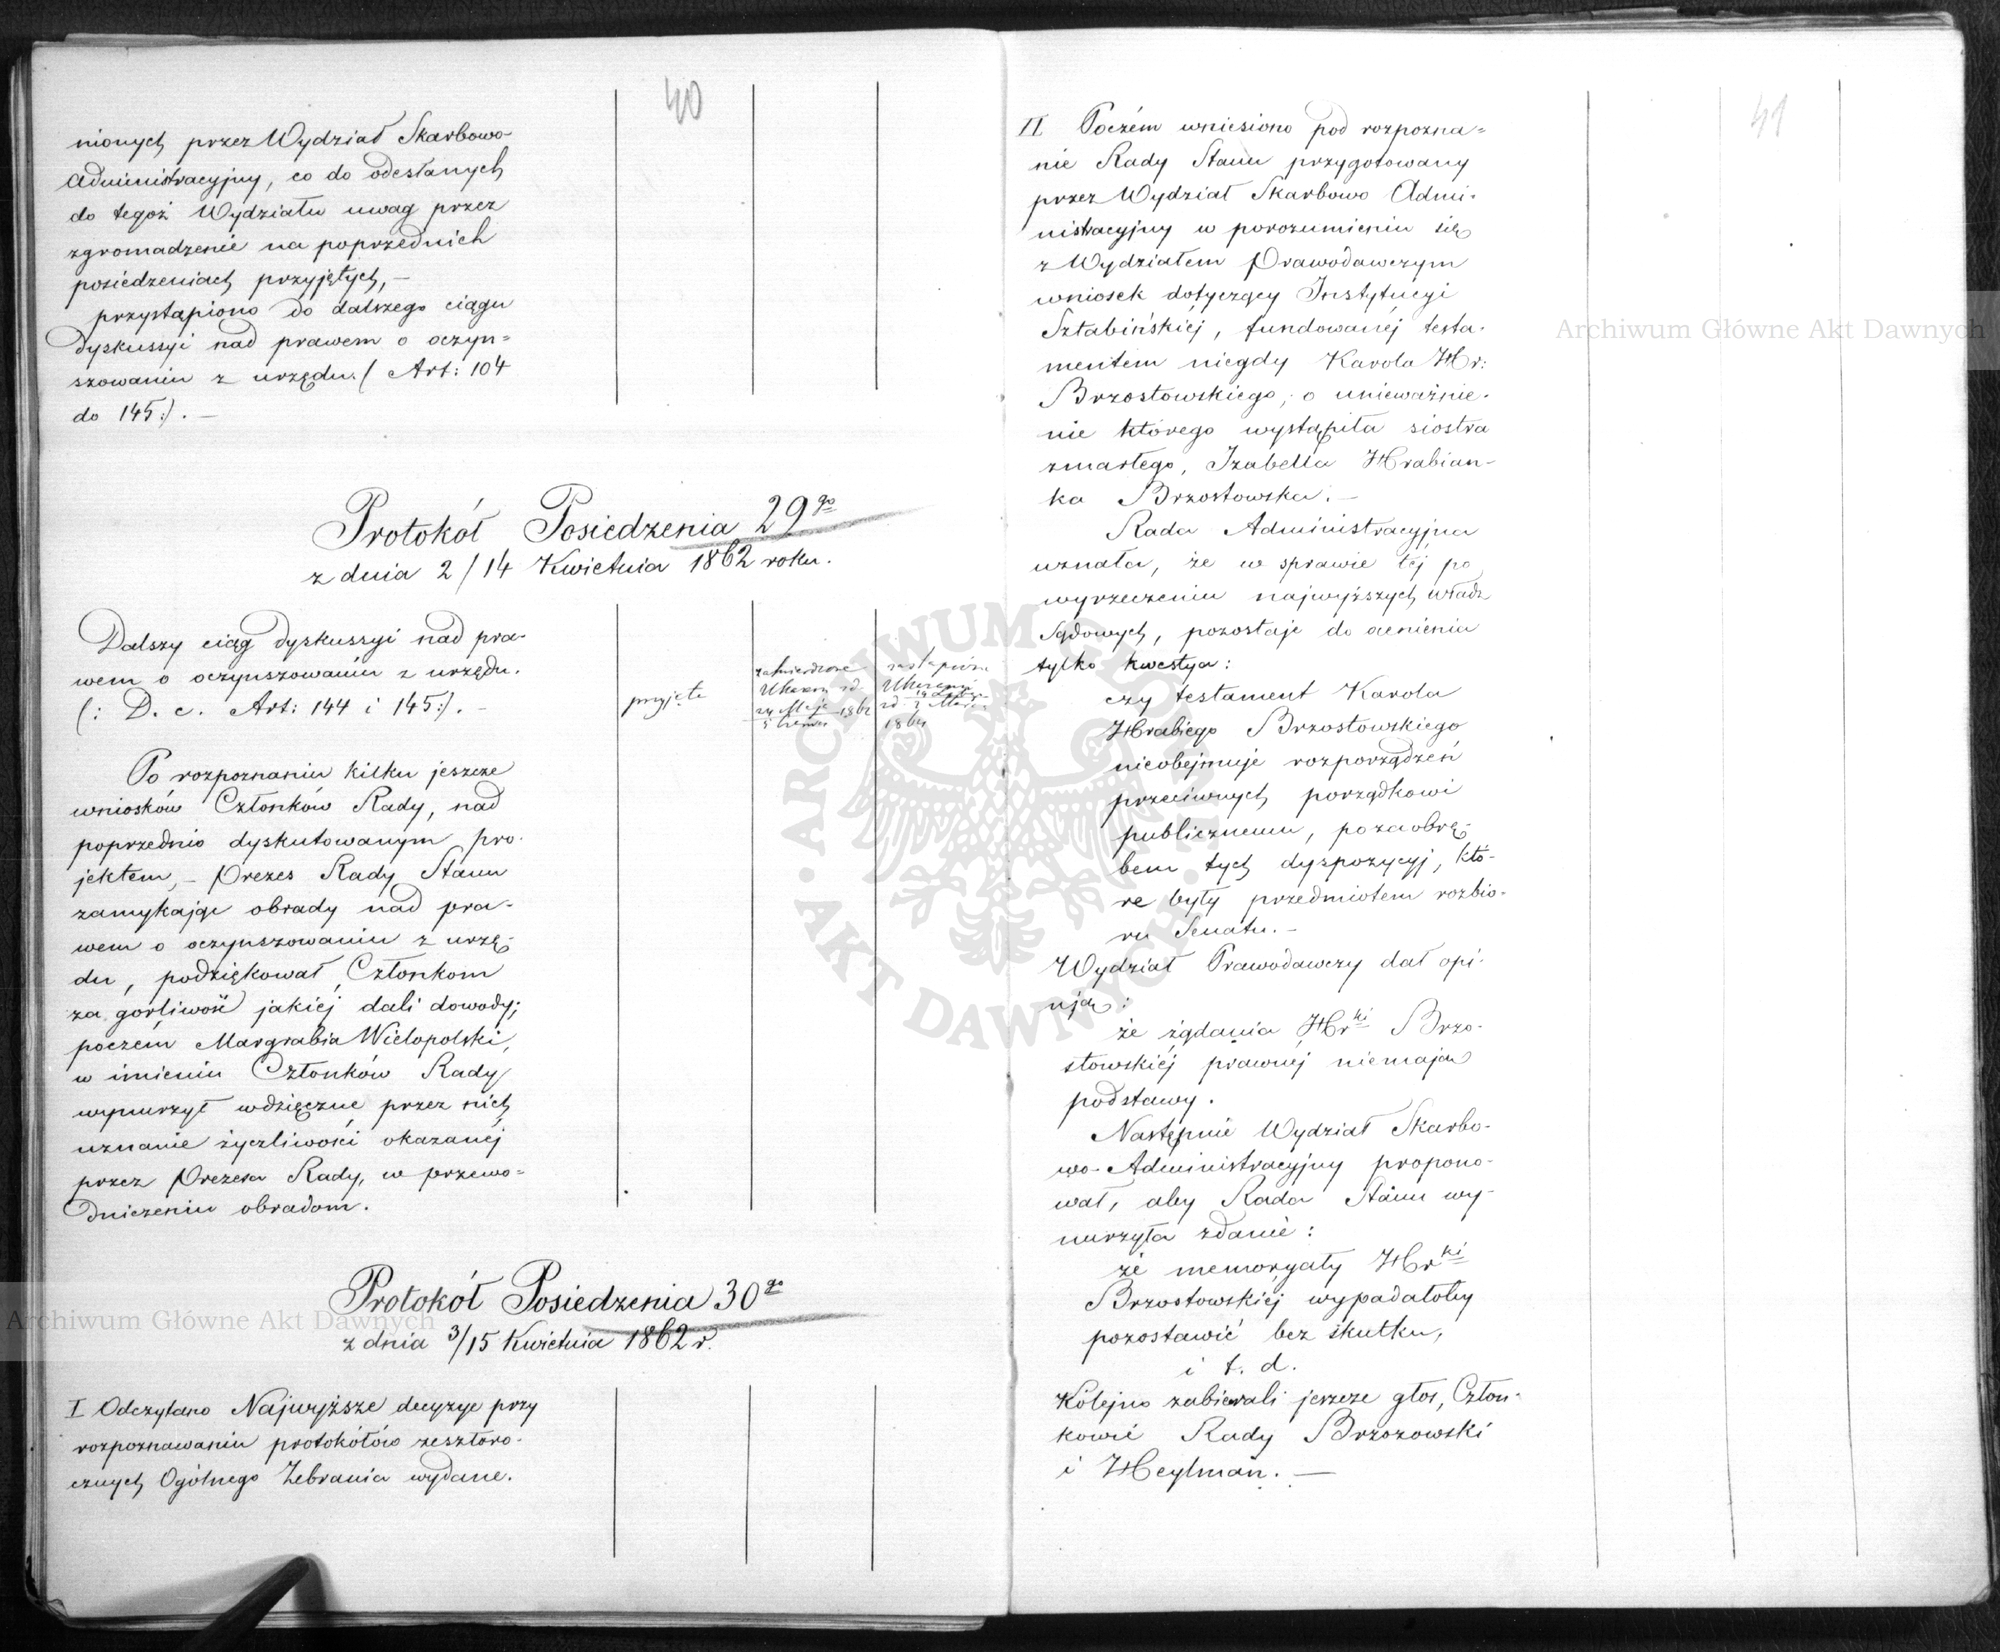 40
nionych przez Wydział Skarbowo-
Administracyjny, co do odesłanych
do tegoż Wydziału uwag przez
zgromadzenie na poprzednich
posiedzeniach przyjętych, —
przystąpiono do dalszego ciągu
dyskussyi nad prawem o oczyn=
szowaniu z urzędu. (Art: 104
do 145:). —
Protokół Posiedzenia 29go
z dnia 2/14 Kwietnia 1862 roku.
Dalszy ciąg dyskussyi nad pra-
wem o oczynszowaniu z urzędu.
(: D. c. Art: 144 i 145:). —
przyjęte
zatwierdzone
Ukazem od
24 Maja 1862
5 Czerwca
zastąpione
Ukazem
1864
Po rozpoznaniu kilku jeszcze
wniosków Członków Rady, nad
poprzednio dyskutowanym pro-
jektem, — Prezes Rady Stanu
zamykając obrady nad pra-
wem o oczynszowaniu z urzę-
du, podziękował Członkom
za gorliwość jakiej dali dowody;
poczém Margrabia Wielopolski,
w imieniu Członków Rady
wynurzył wdzięczne przez nich
uznanie życzliwości okazanéj
przez Prezesa Rady, w przewo=
dniczeniu obradom.
Protokół Posiedzenia 30go
z dnia 3/15 Kwietnia 1862 r.
I Odczytano Najwyższe decyzye przy
rozpoznawaniu protokółów zeszłoro-
cznych Ogólnego Zebrania wydane.
41
II Poczém wniesiono pod rozpozna=
nie Rady Stanu przygotowany
przez Wydział Skarbowo Admi-
nistracyjny w porozumieniu się
z Wydziałem Prawodawczym
wniosek dotyczący Instytucyi
Sztabińskiéj, fundowanéj testa-
mentem niegdy Karola Hr:
Brzostowskiego, o unieważnie-
nie którego wystąpiła siostra
zmarłego, Izabella Hrabian-
ka Brzostowska. —
Rada Administracyjna
uznała, że w sprawie téj po
wyrzeczeniu najwyższych władz
Sądowych, pozostaje do ocenienia
tylko kwestya:
czy testament Karola
Hrabiego Brzostowskiego
nieobejmuje rozporządzeń
przeciwnych porządkowi
publicznemu, poza obrę-
bem tych dyspozycyj, któ-
re były przedmiotem rozbio-
ru Senatu. —
Wydział Prawodawczy dał opi-
niją:
że żądania Hrki Brzo-
stowskiéj prawnéj niemają
podstawy.
Następnie Wydział Skarbo-
wo-Administracyjny propono-
wał, aby Rada Stanu wy-
nurzyła zdanie:
że memoryały Hrki
Brzostowskiéj wypadałoby
pozostawić bez skutku,
i t. d.
Kolejno zabierali jeszcze głos, Człon-
kowie Rady Brzozowski
i Heylman. —
Archiwum Główne Akt Dawnych
Archiwum Główne Akt Dawnych
· ARCHIWUM GŁÓWNE · AKT DAWNYCH ·